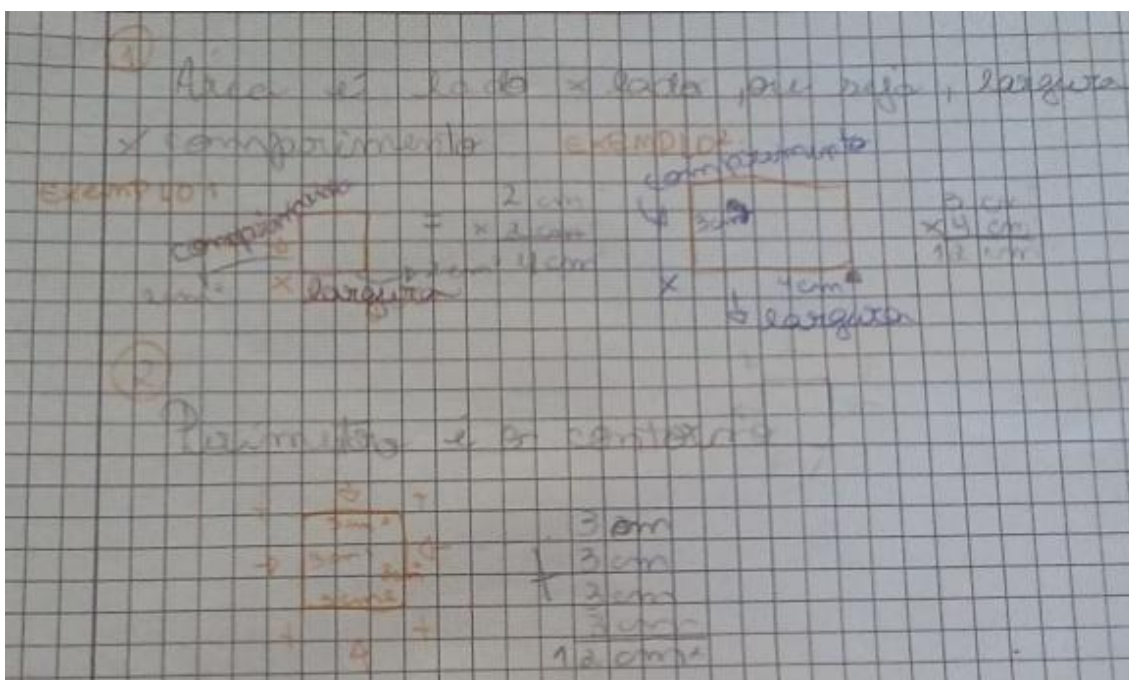 1
Área é lado x lado, ou seja, largura
x comprimento
exemplo1
comprimento
largura
=
2 cm
x 2 cm
4 cm
exemplo2
comprimento
3cm
x
4cm
largura
3 cm
x 4 cm
12 cm
2
Perímetro é o contorno
3cm
+
3 cm
3 cm
3 cm
3 cm
12 cm²